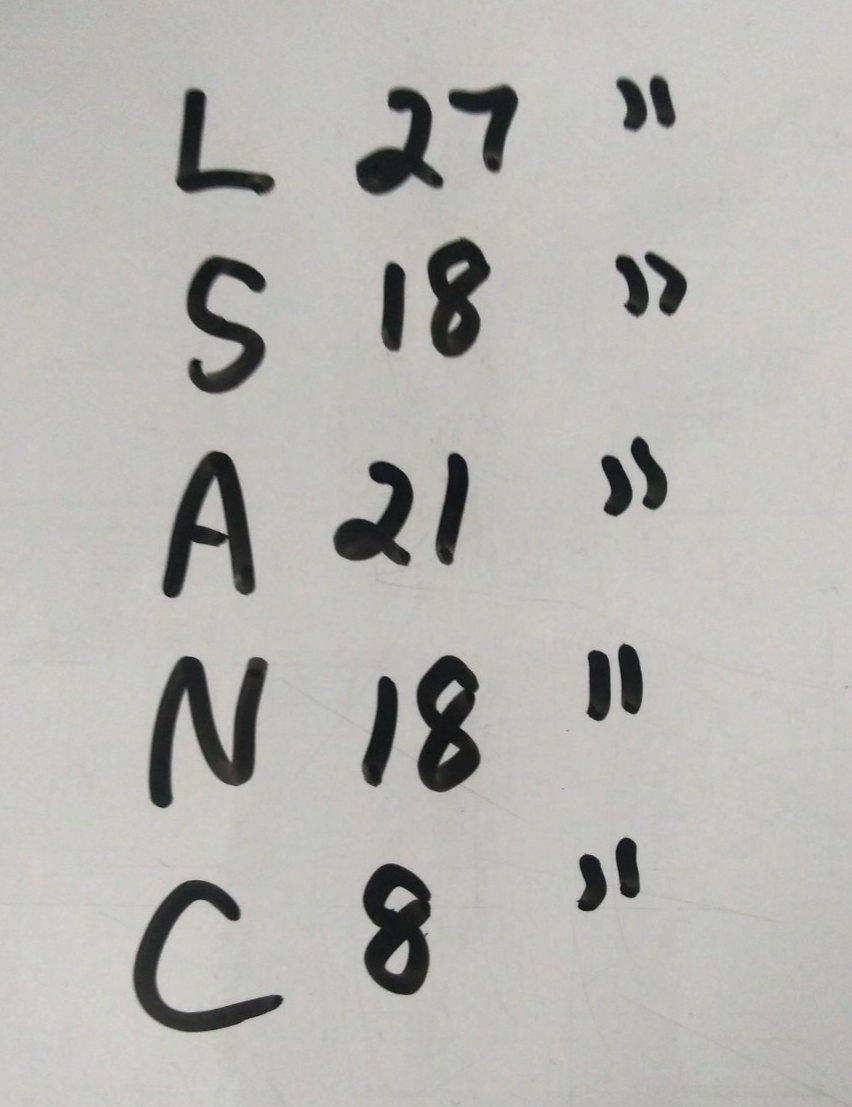 L 27 "
S 18 "
A 21 "
N 18 "
C 8 "